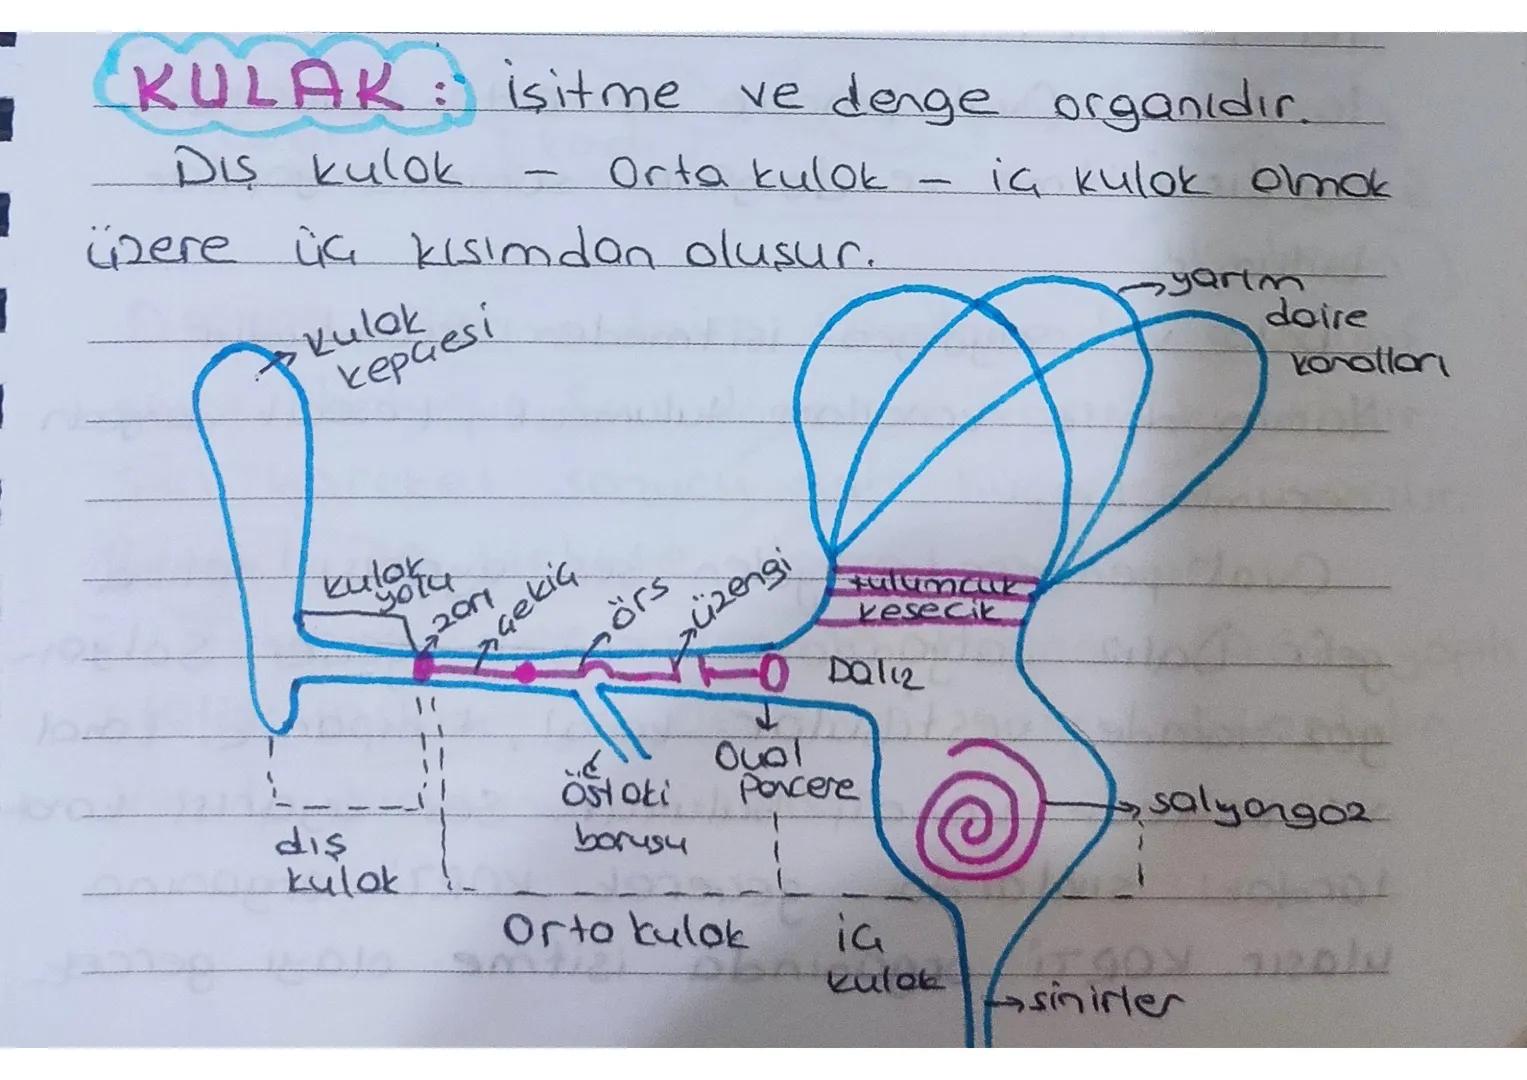 KULAK: işitme ve denge organıdır.
Dış kulak - Orta kulak - iç kulak olmak
üzere üç kısımdan oluşur.
yarım
daire
kanalları
kulak
kepçesi
kulak
yolu
zarı
çekiç
örs
üzengi
tulumcuk
kesecik
Dalız
Oval
Pencere
östaki
borusu
salyangoz
dış
kulak
Orta kulak
iç
kulak
sinirler